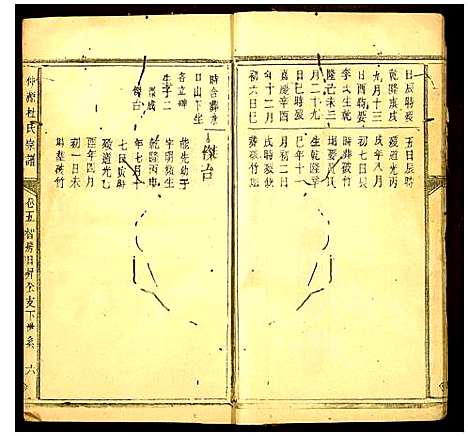 日辰時歿
九月十三
乾隆庚戌
李氏生乾
隆己未三
月二十九
日巳時歿
嘉慶辛酉
年十二月
初六日巳
五日辰時
歿道光丙
戌年八月
初七日辰
時葬
生乾隆辛
巳年十一
月初二日
戌時歿缺
葬荻竹
時合葬
日山下坐
各立碑
生子二
傑成
傑台
傑台
能先幼子
字明顯生
乾隆丙申
年七月十
七日辰時
歿道光乙
酉年四月
初一日未
時葬荻竹
仲源杜氏宗譜
卷五智房日昇公支下世系
六